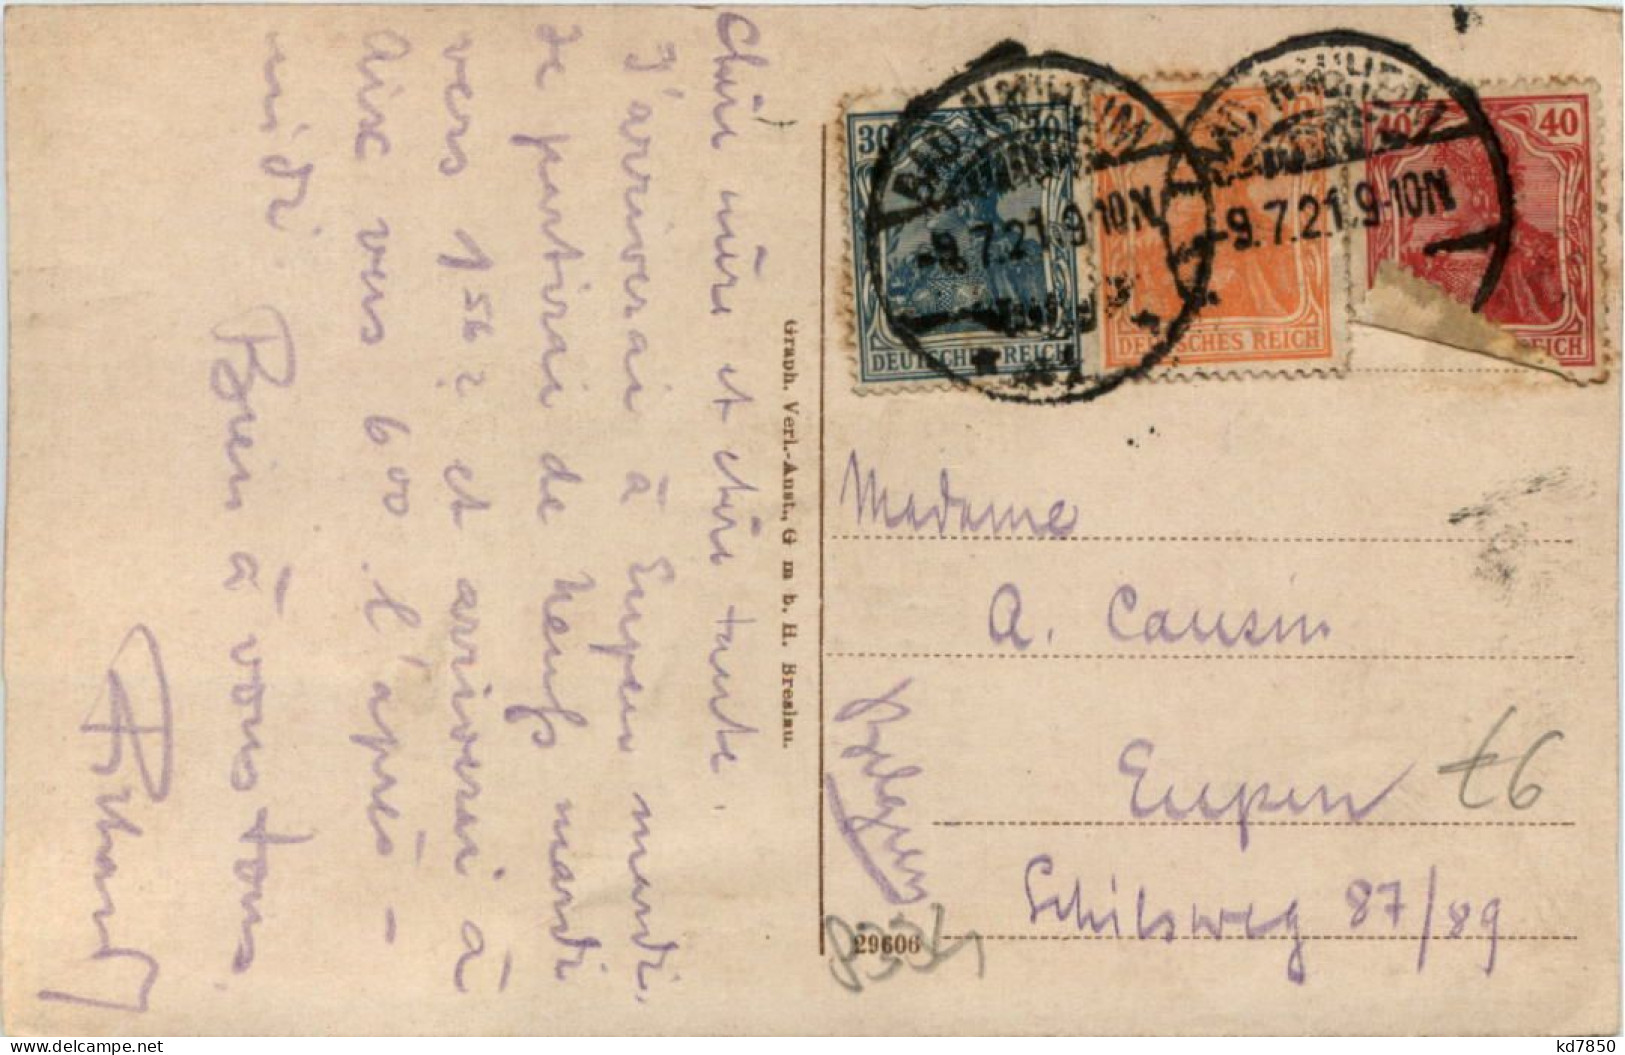 Chère mère et chère tante.
J'arriverai à Eupen mardi.
Je partirai de Neuss mardi
vers 1 56 ? et arriverai à
Aix vers 6 00. l'après-
midi. Bien à vous tous.
Richard
Graph. Verl.-Anst., G m b. H. Breslau.
30 30
DEUTSCHES REICH
DEUTSCHES REICH
40 40
REICH
BAD NAUHEIM
-9.7.21.9-10N
BAD NAUHEIM
-9.7.21.9-10N
Madame
A. Causin
Eupen
Schilsweg 87/89
Belgien
t6
29606
kd7850